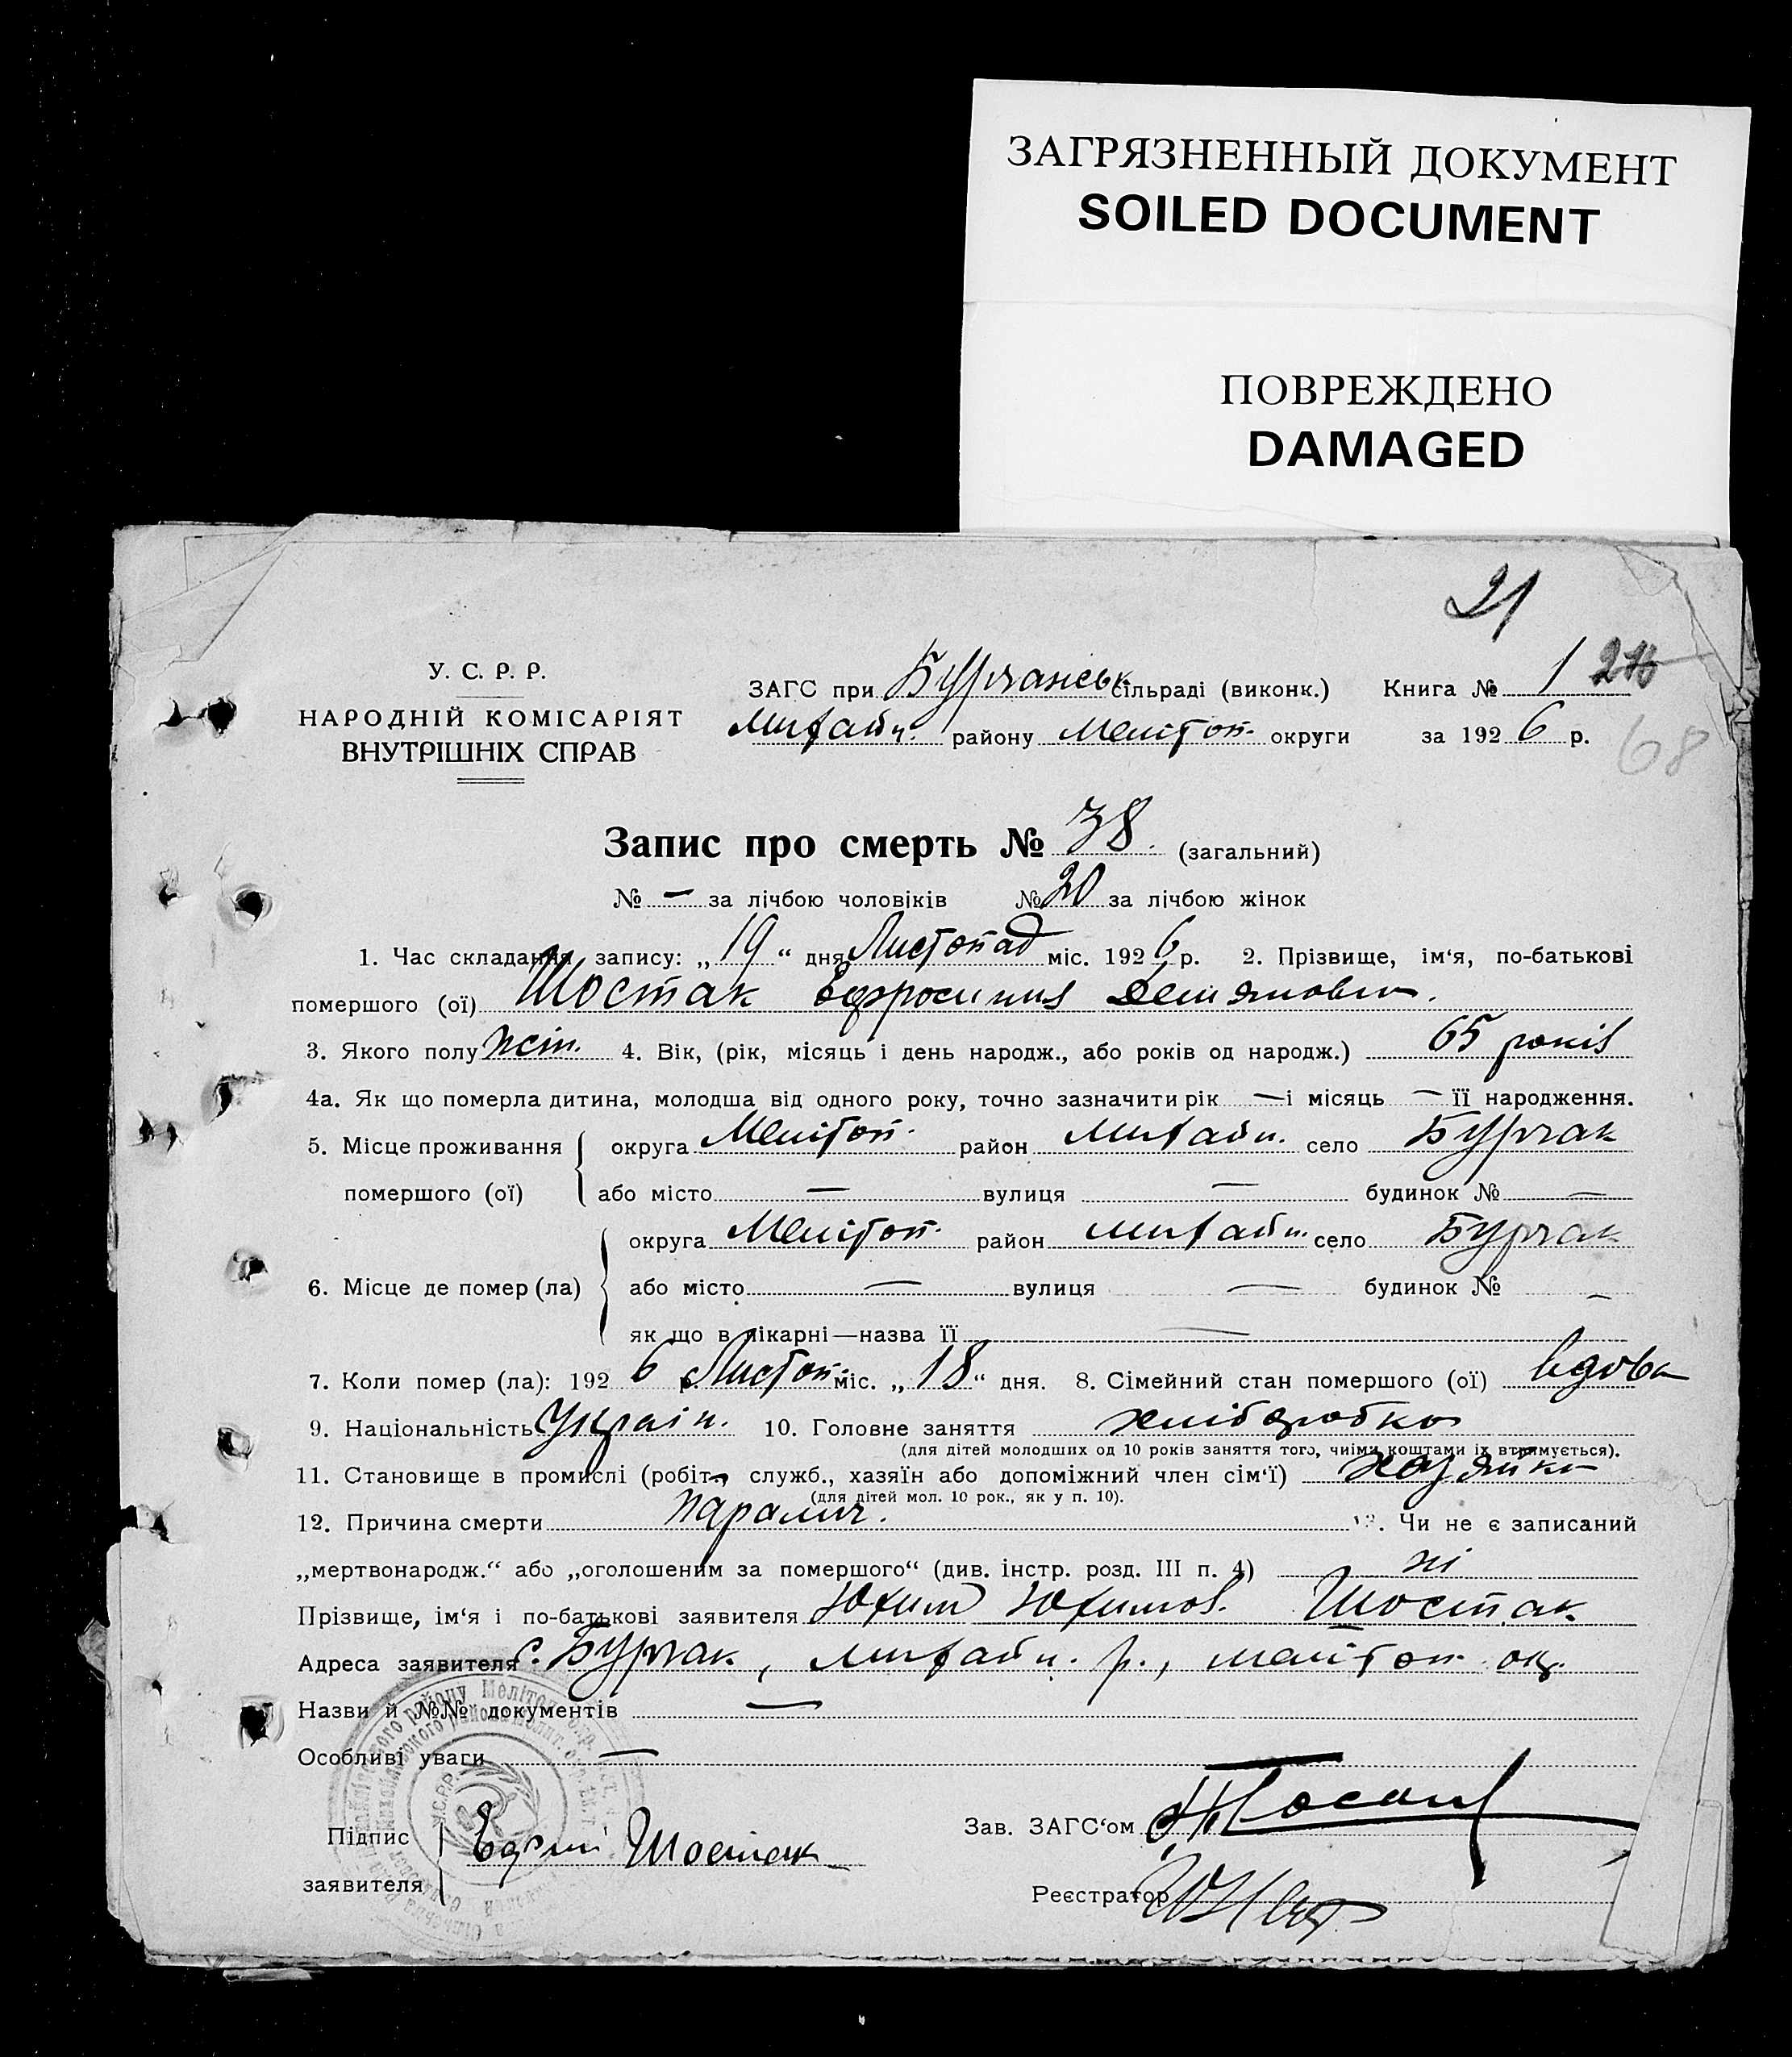 ЗАГРЯЗНЕННЫЙ ДОКУМЕНТ
SOILED DOCUMENT
ПОВРЕЖДЕНО
DAMAGED
21
У. С. Р. Р.
НАРОДНІЙ КОМІСАРІЯТ
ВНУТРІШНІХ СПРАВ
ЗАГС при Бурчанськ сільраді (виконк.) Книга № 1
Михайл. району Мелітоп. округи за 1926 р.
68
Запис про смерть № 38. (загальний)
№ — за лічбою чоловіків № 20 за лічбою жінок
1. Час складання запису: „19“ дня Листопад міс. 1926 р. 2. Прізвище, ім‘я, по-батькові
помершого (ої) Шостак Ефросиния
3. Якого полу жін. 4. Вік, (рік, місяць і день народж., або років од народж.) 65 років
4а. Як що померла дитина, молодша від одного року, точно зазначити рік — і місяць — її народження.
5. Місце проживання помершого (ої) округа Мелітоп. район Михайл. село Бурчак
або місто — вулиця — будинок № —
6. Місце де помер (ла) округа Мелітоп. район Михайл. село Бурчак
або місто — вулиця — будинок № —
як що в лікарні—назва її —
7. Коли помер (ла): 1926 Листоп. міс. „18“ дня. 8. Сімейний стан помершого (ої) вдова
9. Національність Україн. 10. Головне заняття хліборобка
(для дітей молодших од 10 років заняття того, чиїми коштами їх втримується).
11. Становище в промислі (робітн., служб., хазяїн або допоміжний член сім‘ї) хазяйка
(для дітей мол. 10 рок., як у п. 10).
12. Причина смерти паралич. 13. Чи не є записаний
„мертвонародж.“ або „оголошеним за помершого“ (див. інстр. розд. III п. 4) ні
Прізвище, ім‘я і по-батькові заявителя Юхим Юхимов. Шостак
Адреса заявителя с. Бурчак, Михайл. р., ок.
Назви й №№ документів —
Особливі уваги —
Підпис заявителя Шостак
Зав. ЗАГС‘ом
Реєстратор